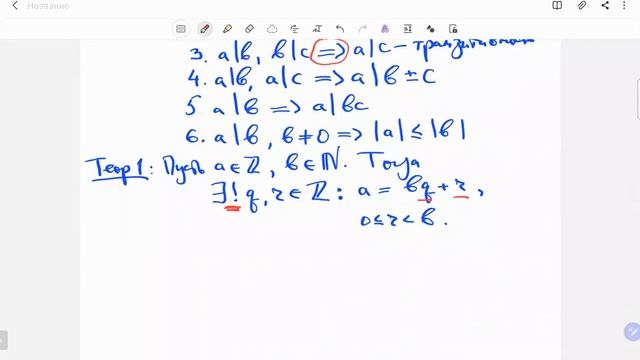 Название
3. a|b, b|c => a|c – транзитивность
4. a|b, a|c => a|b ± c
5. a|b => a|bc
6. a|b, b≠0 => |a| ≤ |b|
Теор 1: Пусть a∈ℤ, b∈ℕ. Тогда
∃! q, r∈ℤ: a = bq + r,
0≤r<b.